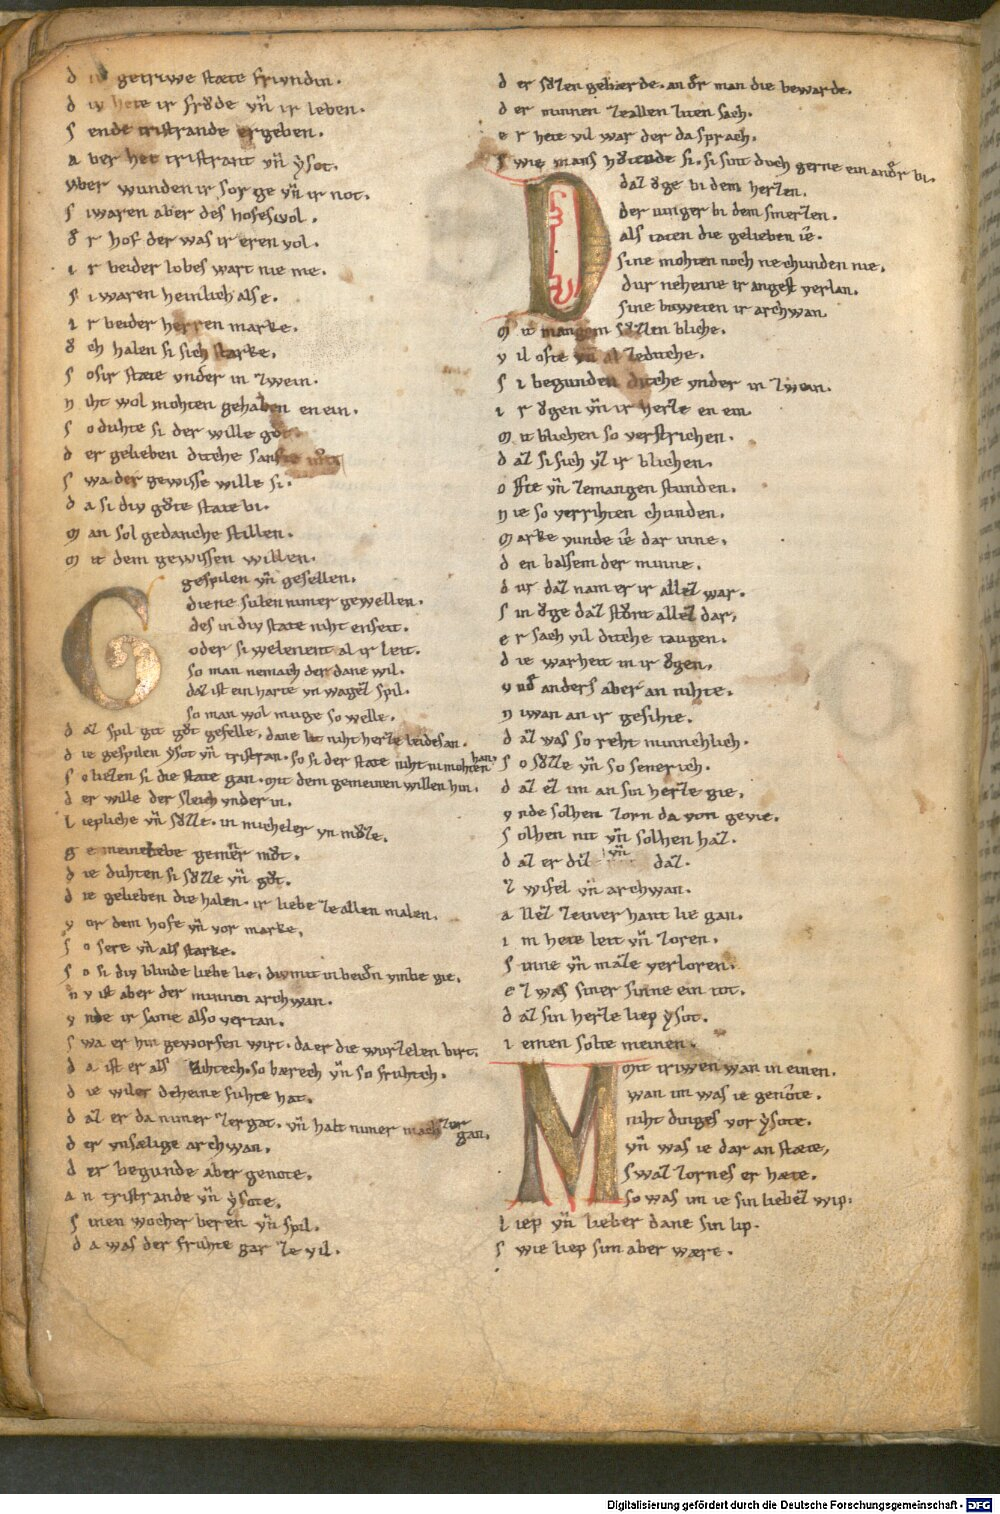 d iv getriwe stæte frivndin.
d iv hete ir frŏde vn̄ ir leben.
s ende tristrande ergeben.
a ber het tristrant vn̄ ẏsot.
vber wunden ir sorge vn̄ ir not.
s i waren aber des hofes wol.
ŏ r hof der was ir eren vol.
i r beider lobes wart nie me.
s i waren heinlich alse.
i r beider herren marke.
ŏ ch halen si sich starke.
s o sir stæte vnder in zwein.
n iht wol mohten gehaben en ein.
s o duhte si der wille gŏt
d er gelieben diche sanfte
s wa der gewisse wille si.
d a si div gŏte state bi.
m an sol gedanche stillen.
m it dem gewissen willen.
G gespilen vn̄ gesellen.
diene suln nimer gewellen.
des in div state niht enseit.
oder si welent al ir leit.
so man nemach der dane wil.
daz ist ein harte vn wægez spil.
so man wol muge so welle.
d az spil git gŏt geselle. dane lit niht herze leides an.
d ie gespilen ẏsot vn̄ tristran. so si der state niht mohten han.
s o liezen si die state gan. mit dem gemeinen willen hin.
d er wille der sleich vnder in.
l iepliche vn̄ sŏzze. in micheler vnmŏze.
g emeine liebe gemeīr mŏt.
d ie duhten si sŏzze vn̄ gŏt.
d ie gelieben die halen. ir liebe ze allen malen.
v or dem hofe vn̄ vor marke.
s o sere vn̄ als starke.
s o si div blinde liebe lie. div mit in beidn̄ vmbe gie.
n v ist aber der minnen archwan.
v nde ir same also vertan.
s wa er hin geworfen wirt. da er die wurzelen birt.
d a ist er als fuhtech. so bærech vn̄ so fruhtech.
d ie wiler deheine fuhte hat.
d az er da nimer zergat. vn̄ halt nimer mach zer gan.
d er vnsælige archwan.
d er begunde aber genote.
a n tristrande vn̄ ẏsote.
s inen wocher beren̄ vn̄ spil.
d a was der fruhte gar ze vil.
d er sŏzen gebærde. an dr̄ man die bewarde.
d er minnen ze allen ziten sach.
e r hete vil war der da sprach.
s wie mans hŏtende si. si sint doch gerne ein andr̄ bi.
D daz ŏge bi dem herzen.
der vinger bi dem smerzen.
als taten die gelieben ie.
sine mohten noch ne chunden nie.
dur neheine ir angest verlan.
sine bitweten ir archwan.
m it mangem sŏzzen bliche.
v il ofte vn̄ al ze diche.
s i begunden diche vnder in zwein.
i r ŏgen vn̄ ir herze en ein.
m it blichen so verstrichen.
d az si sich vz ir blichen.
o fte vn̄ ze mangen stunden.
n ie so verrihten chunden.
m arke vunde ie dar inne.
d en balsem der minne.
d ur daz nam er ir allez war.
s in ŏge daz stŏnt allez dar,
e r sach vil diche taugen.
d ie warheit in ir ŏgen,
v nd̄ anders aber an nihte.
n iwan an ir gesihte.
d az was so reht minnechlich.
s o sŏzze vn̄ so senerich.
d az ez im an sin herze gie.
v nde solhen zorn da von gevie.
s olhen nit vn̄ solhen haz.
d az er diz vn̄ daz.
z wifel vn̄ archwan.
a llez ze einer hant lie gan.
i m hete leit vn̄ zoren.
s inne vn̄ maze verloren.
e z was siner sinne ein tot.
d az sin herze liep ẏsot.
i emen solte meinen.
M mit triwen wan in einen.
wan im was ie genote.
niht dinges vor ẏsote.
vn̄ was ie dar an stæte,
swaz zornes er hæte.
so was im ie sin liebez wip.
l iep vn̄ lieber dane sin lip.
s wie liep sim aber wære.
Digitalisierung gefördert durch die Deutsche Forschungsgemeinschaft - DFG